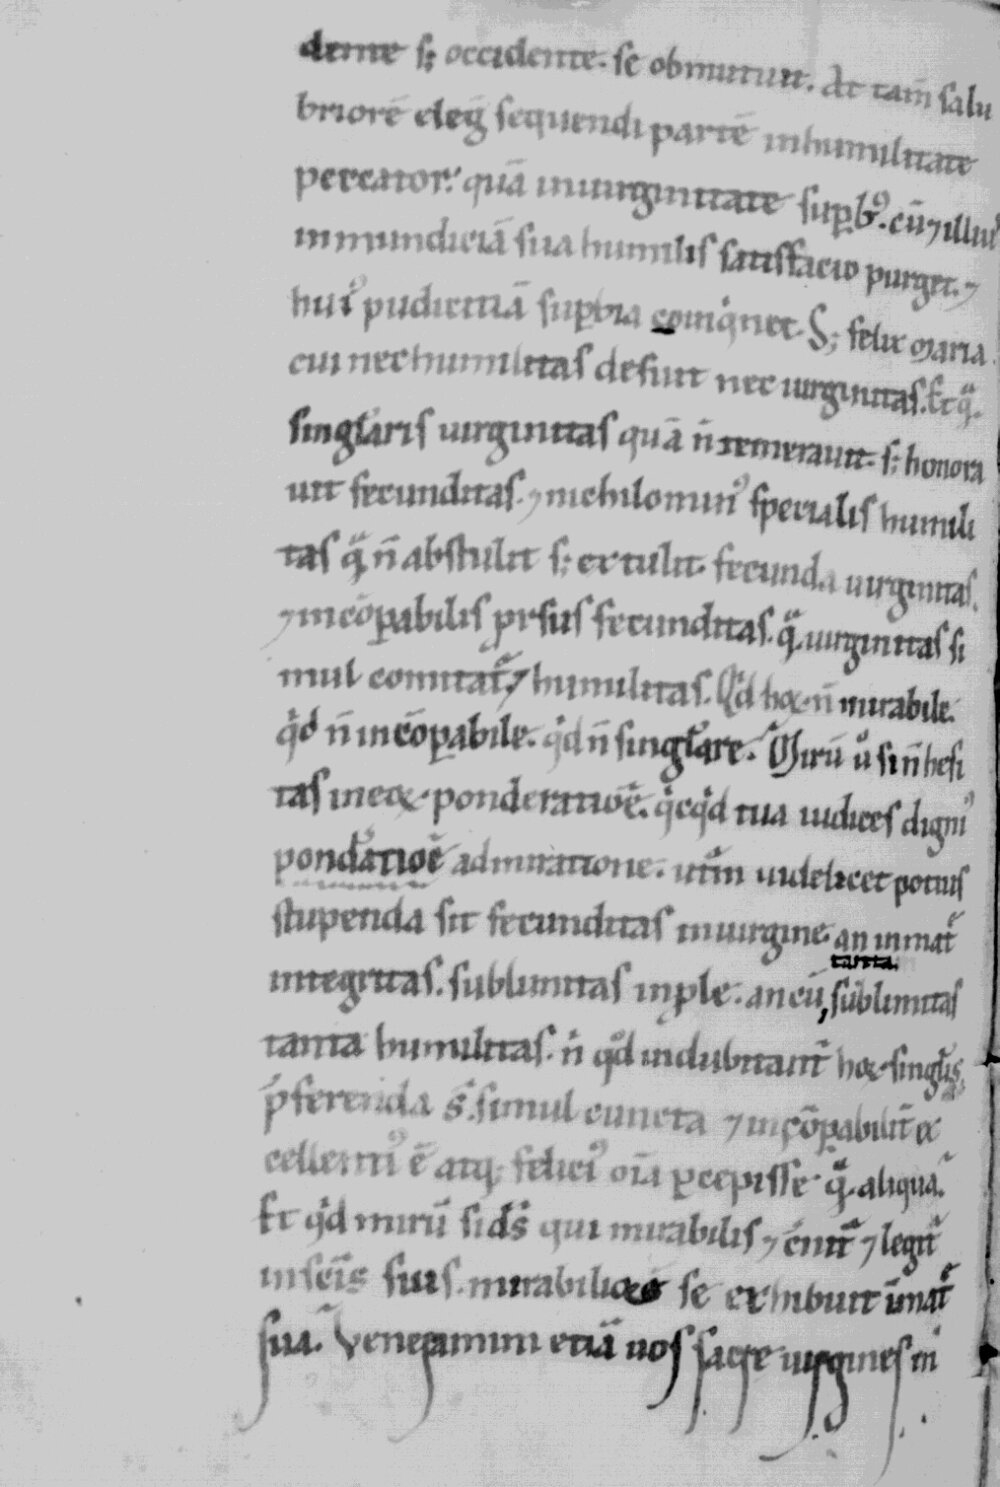 dente s; occidente. se obmutuit. At tam̄ salu
briorē eleḡ sequendi partē in humilitate
peccator.' quā in uirginitate supb᷒. cū ⁊ illiu᷒
inmundiciā sua humilis satisfactio purget. ⁊
hui᷒ pudicitiā supbia coinq̇net. S; felix maria.
cui nec humilitas defuit nec uirginitas. Et q̄.
singlaris uirginitas quā n̄ temerauit. s; honora
uit fecunditas. ⁊ nichilomin᷒ specialis humili
tas q̄ n̄ abstulit s; extulit fecunda uirginitas.
⁊ incōpabilis prsus fecunditas. q̄ uirginitas si
mul comitat̄. ⁊ humilitas. Qd hoꝝ n̄ mirabile.
q̇d n̄ incōpabile. q̇d n̄ singlare. Mirū u̇ si n̄ hesi
tas in eoꝝ ponderatiōe. q̇cq̇d tua iudices digni᷒
pondatiōe admiratione. utm̄ uidelicet potius
stupenda sit fecunditas in uirgine. an in mat̄
integritas. sublimitas in ple. an cū, sublimitas
tanta
tanta humilitas. n̄ qd indubitant̄ hoꝝ singlis
p̄ferenda s̄. simul cuncta ⁊ incōpabilit̄ ex
cellenti᷒ ē atq; felici᷒ oīa pcepisse q̄ aliqua.
Et q̇d mirū si ds̄ qui mirabilis ⁊ c̄nit̄ ⁊ legit̄
in scīs suis. mirabiliorē se exhibuit in mat̄
sua. Veneramini etiā uos sacre uirgines in